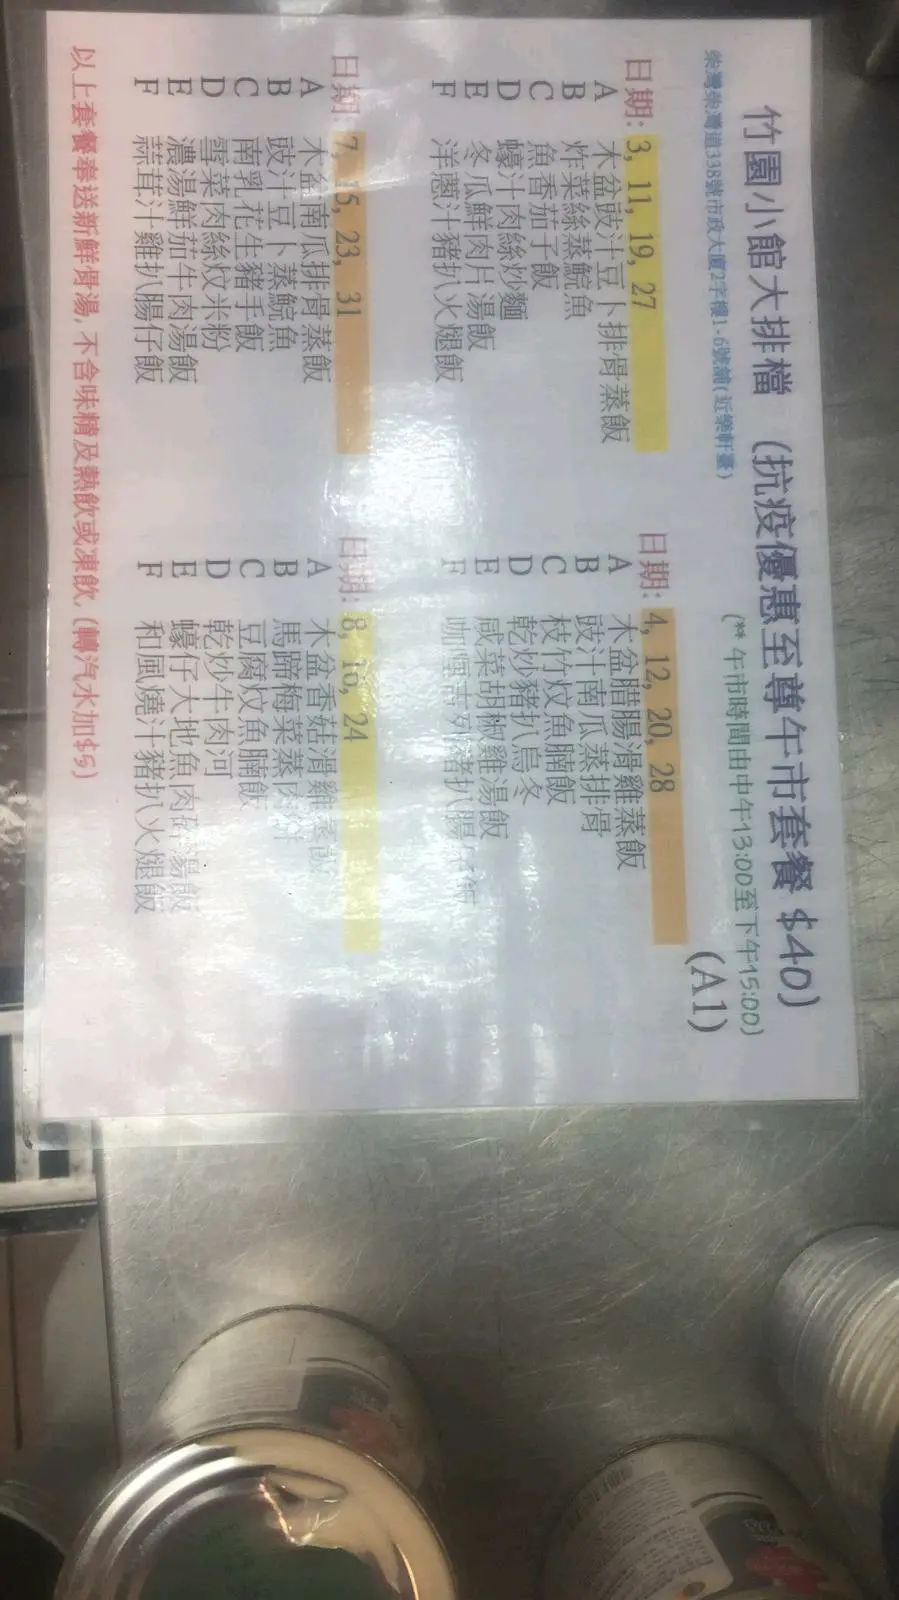 竹園小館大排檔 (抗疫優惠至尊午市套餐 $40)
柴灣柴灣道338號市政大廈2字樓1-6號舖(近樂軒臺)
(** 午市時間由中午13:00至下午15:00)
(A1)
日期: 3, 11, 19, 27
A 木盆豉汁豆卜排骨蒸飯
B 炸菜絲蒸鯇魚
C 魚香茄子飯
D 蠔汁肉絲炒麵
E 冬瓜鮮肉片湯飯
F 洋蔥汁豬扒火腿飯
日期: 4, 12, 20, 28
A 木盆腊腸滑雞蒸飯
B 豉汁南瓜蒸排骨
C 枝竹炆魚腩飯
D 乾炒豬扒烏冬
E 咸菜胡椒雞湯飯
F 咖喱吉列豬扒腸
日期: 7, 15, 23, 31
A 木盆南瓜排骨蒸飯
B 豉汁豆卜蒸鯇魚
C 南乳花生豬手飯
D 雪菜肉絲炆米粉
E 濃湯鮮茄牛肉湯飯
F 蒜茸汁雞扒腸仔飯
日期: 8, 16, 24
A 木盆香菇滑雞蒸飯
B 馬蹄梅菜蒸肉餅
C 豆腐炆魚腩飯
D 乾炒牛肉河
E 蠔仔大地魚肉碎湯飯
F 和風燒汁豬扒火腿飯
以上套餐奉送新鮮骨湯, 不含味精及熱飲或凍飲, (轉汽水加$5)